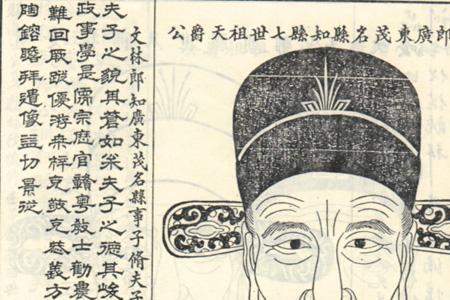 郎廣東茂名縣知縣七世祖天爵公
文林郎知廣東茂名縣事子脩夫子
夫子之貌蒼如夫子之德其峻
政事學是儒宗官贛粵教士勸農
難回厥蹤優游桑梓克敬克慈義方
陶鎔瞻拜遺像益切景從